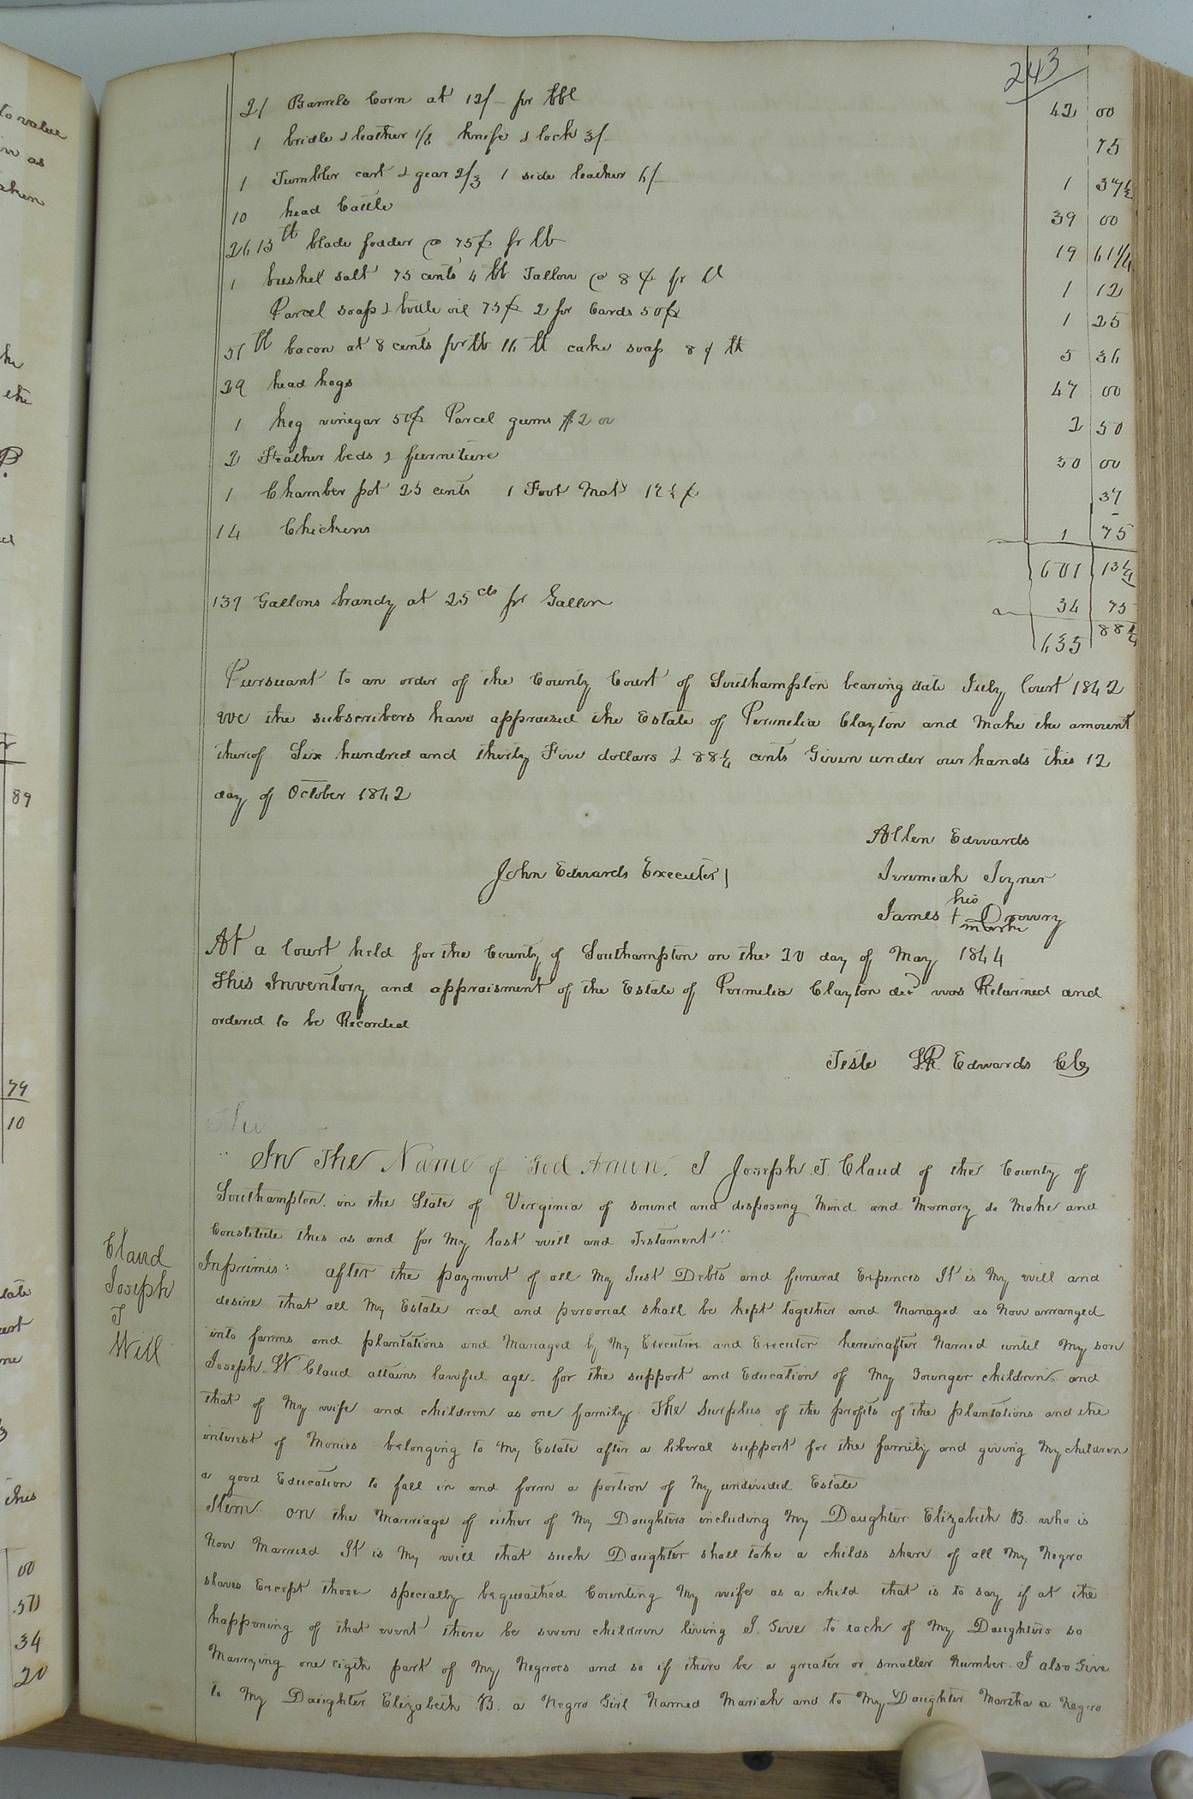 243
21 Barrels Corn at 12/- pr bbl 42 00
1 bridle & leather 1/6 knife & lock 3/- 75
1 Tumbler cart & gear 2/3 1 side leather 6/- 1 37½
10 head Cattle 39 00
2615 lb blade fodder @ 75¢ pr lb 19 61¼
1 bushel salt 75 cents 4 lb Tallow @ 8 ¢ pr lb 1 12
Parcel soap & bottle oil 75¢ 2 pr Cards 50¢ 1 25
51 lb bacon at 8 cents pr lb 16 lb cake soap 8 ¢ lb 5 36
29 head hogs 47 00
1 keg vinegar 50¢ Parcel gums $2 00 2 50
2 Feather beds & furniture 30 00
1 Chamber pot 25 cents 1 Foot Mat 12½ ¢ 37
14 Chickens 1 75
601 13¼
139 Gallons brandy at 25 cts pr Gallon 34 75
635 88¼
Pursuant to an order of the County Court of Southampton bearing date July Court 1842
We the subscribers have appraised the Estate of Permelia Clayton and Make the amount
thereof Six hundred and thirty Five dollars & 88¼ cents Given under our hands this 12
day of October 1842
Allen Edwards
John Edwards Executor
Jeremiah Joyner
his
James + Drewry
mark
At a Court held for the County of Southampton on the 20 day of May 1844
This Inventory and appraisment of the Estate of Permelia Clayton decd was Returned and
ordered to be Recorded
Teste L.R. Edwards Clk
In The Name of God Amen. I Joseph T Claud of the County of
Southampton in the State of Virginia of sound and disposing Mind and Memory do Make and
Constitute this as and for My last will and Testament
Claud
Joseph
T
Will
Inprimis: after the payment of all My Just Debts and funeral Expences It is My will and
desire that all My Estate real and personal shall be kept together and Managed as Now arranged
into farms and plantations and Managed by My Executrix and Executor hereinafter Named until My son
Joseph W Claud attains lawful age for the support and Education of My Younger children and
that of My wife and children as one family. The Surplus of the profits of the plantations and the
interest of Monies belonging to My Estate after a liberal support for the family and giving My children
a good Education to fall in and form a portion of My undivided Estate
Item on the Marriage of either of My Daughters including My Daughter Elizabeth B. who is
Now Married It is My will that such Daughter shall take a childs share of all My Negro
slaves Except those specially bequeathed Counting My wife as a child that is to say if at the
happening of that event there be seven children living I Give to each of My Daughters so
Marrying one eigth part of My Negroes and so if there be a greater or smaller Number. I also Give
to My Daughter Elizabeth B. a Negro Girl Named Mariah and to My Daughter Martha a Negro
89
79
10
00
50
34
20